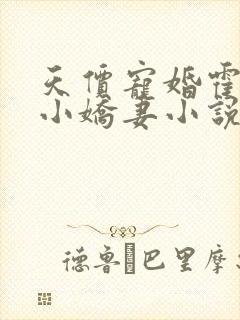 天價寵婚霍
小嬌妻小說
德魯 巴里摩